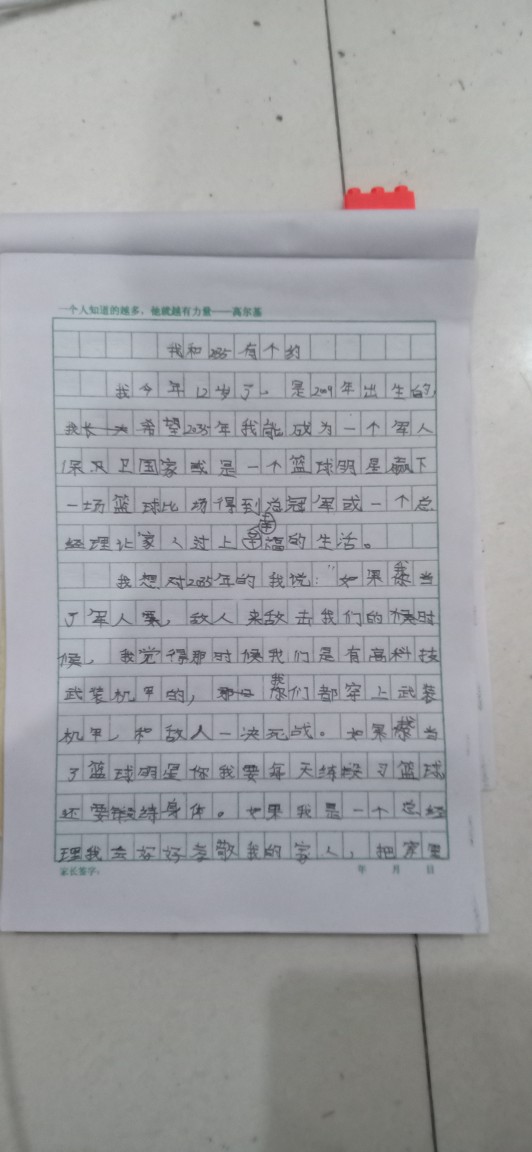 一个人知道的越多，他就越有力量——高尔基
我和2035有个约
我今年12岁了。是2009年出生的，
希望2035年我能成为一个军人
保卫国家或是一个篮球明星赢下
一场篮球比场得到总冠军或一个总
经理让家人过上幸福的生活。
我想对2035年的我说："如果我当
了军人，敌人来敌去我们的时
候，我觉得那时候我们是有高科技
武装机甲的，我们都穿上武装
机甲，和敌人一决死战。如果当
了篮球明星你我要每天练习篮球
还要锻练身体。如果我是一个总经
理我会好好孝敬我的家人，把家里
家长签字： 年 月 日